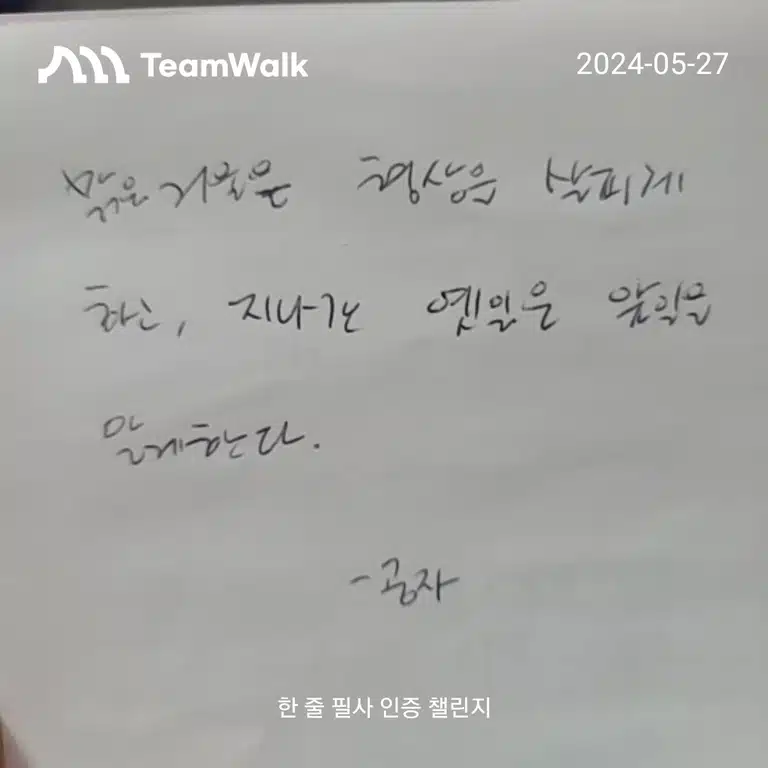 TeamWalk
2024-05-27
맑은 거울은 형상을 살피게
하고, 지나간 옛일은 앞일을
알게한다.
-공자
한 줄 필사 인증 챌린지